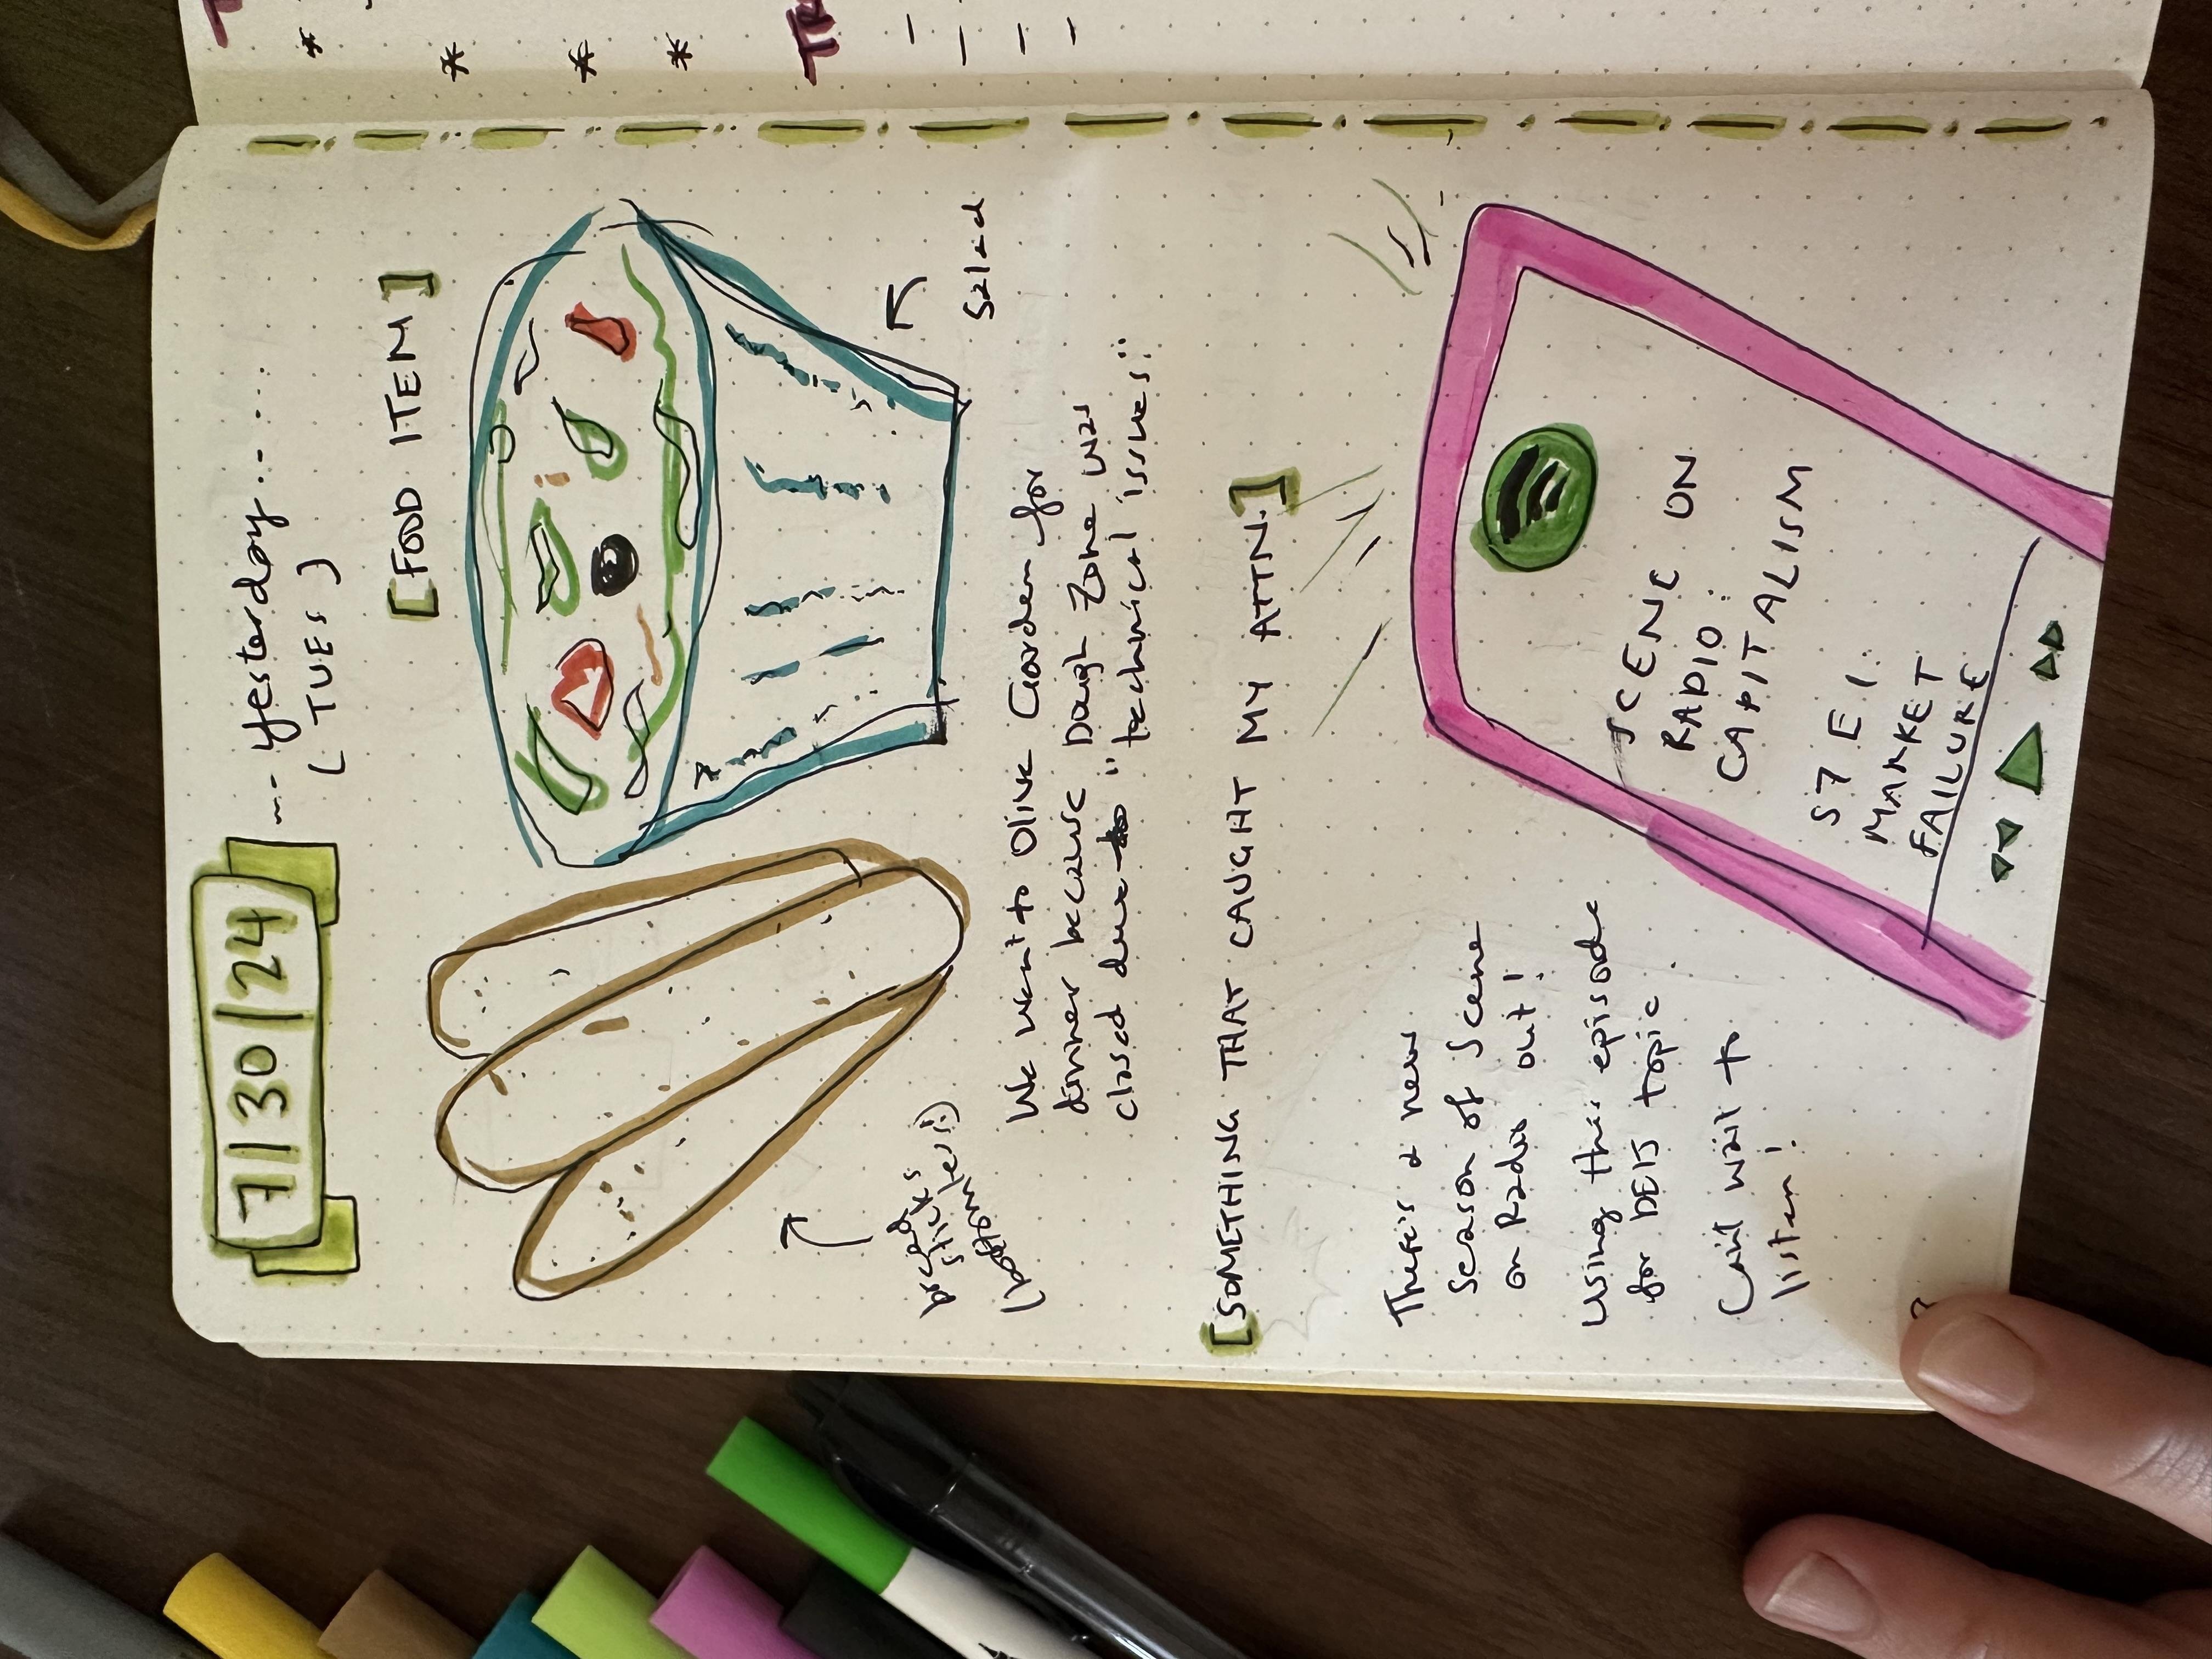 7/30/24
--- yesterday......
( TUES )
[FOOD ITEM]
bread
sticks
salad
We went to Olive Garden for
dinner because Dough Zone was
closed due to "technical issues"
[SOMETHING THAT CAUGHT MY ATTN.]
There's a new
season of Scene
on Radio out!
using this episode
for DEIJ topic
Can't wait to
listen!
SCENE ON
RADIO:
CAPITALISM
S7 E1:
MARKET
FAILURE